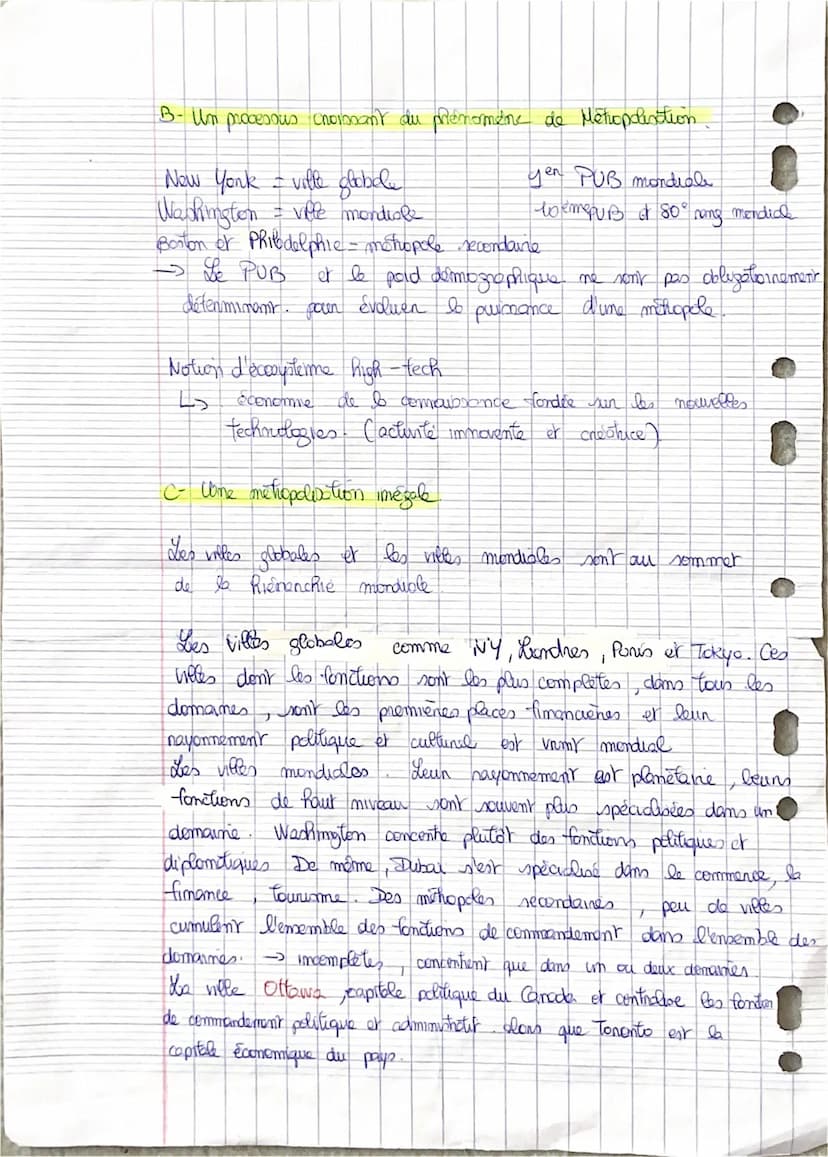 B- Un processus croissant du phénomène de Métropolisation.
New York = ville globale 1er PUB mondiale
Washington = ville mondiale 10èmePUB et 80° rang mondiale
Boston et PHILadelphie = métropole secondaire
→ Le PUB et le poid démographique ne sont pas obligatoirement
déterminant. pour évaluer la puissance d'une métropole.
Notion d'écosystème high-tech
↳ économie de la connaissance fondée sur les nouvelles
technologies. (activité innovente et créatrice)
C- Une métropolisation inégale
Les villes globales et les villes mondiales sont au sommet
de la hiérarchie mondiale
Les villes globales comme NY, Londres, Paris et Tokyo. Ces
villes dont les fonctions sont les plus complètes, dans tous les
domaines, sont les premières places financières et leur
rayonnement politique et culturel est vraimt mondial
Les villes mondiales. Leur rayonnement est planétaire, leurs
fonctions de haut niveau sont souvent plus spécialisées dans un
domaine. Washington concentre plutôt des fonctions politiques et
diplomatiques De même, Dubai s'est spécialisé dans le commerce, la
finance, tourisme. Des métropoles secondaires, peu de villes
cumulent l'ensemble des fonctions de commandement dans l'ensemble des
domaines. → incomplètes, concentrent que dans un ou deux domaines.
La ville Ottawa, capitale politique du Canada et centralise les fonction
de commandement politique et administratif. alors que Toronto est la
capitale économique du pays.